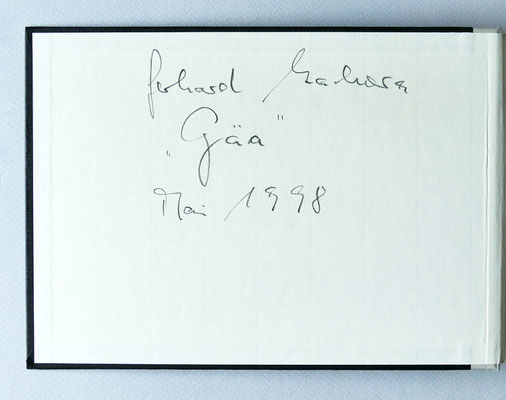 Gerhard
„Gäa"
Mai 1998